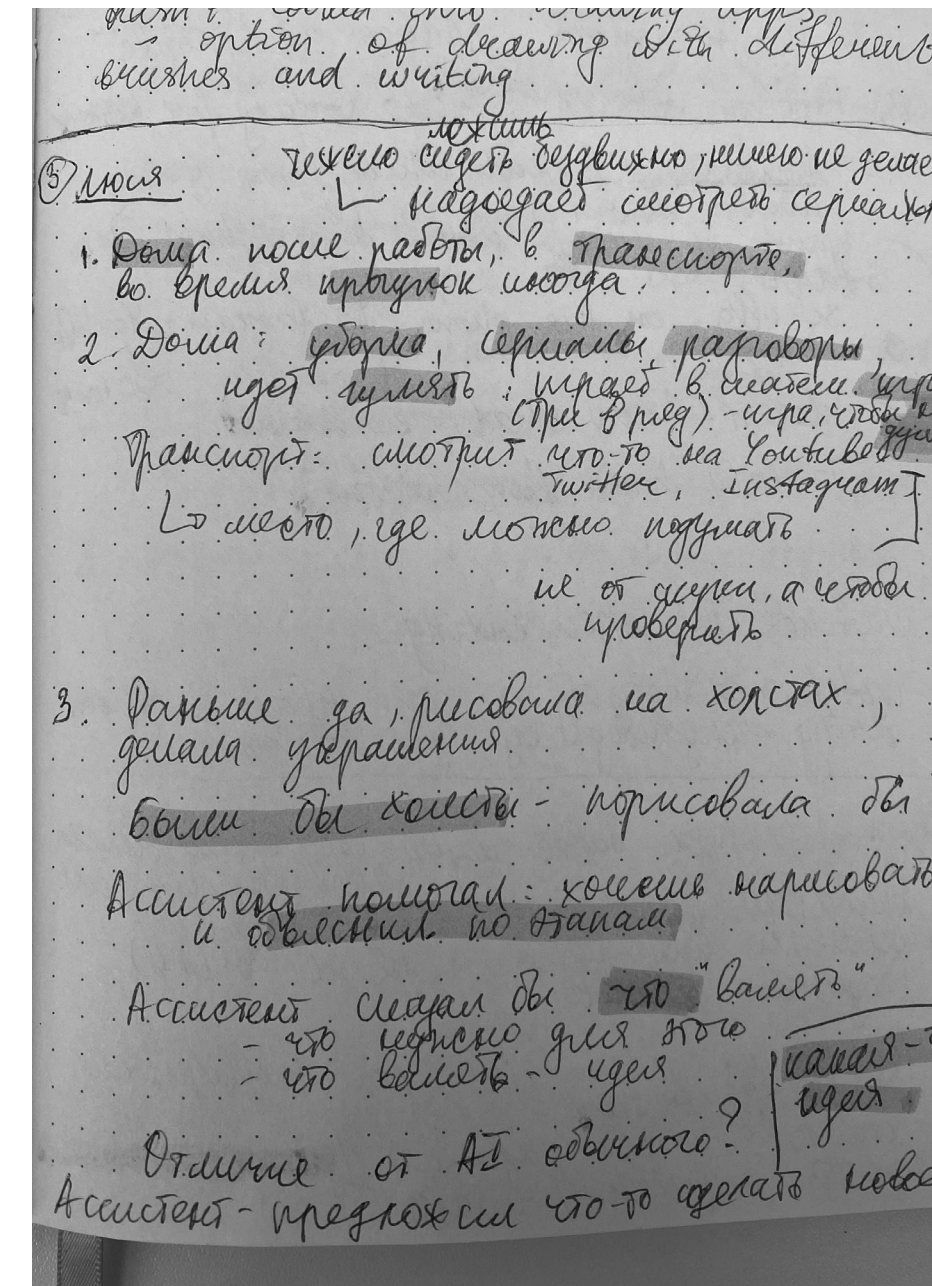 - option of drawing with different
brushes and writing
⑤ Люся
ложишь
тяжело сидеть бездвижно, ничего не делае
надоедает смотреть сериал
1. Дома после работы, в транспорте,
во время прогулок иногда.
2. Дома: уборка, сериалы, разговоры,
идет гулять; играет в
(три в ряд) - игра, чтобы
Транспорт: смотрит что-то на Youtube
Twitter, Instagram
место, где можно подумать
не от скуки, а чтобы
проверить
3. Раньше да, рисовала на холстах,
делала украшения
Были бы холсты - порисовала бы
Ассистент помогал: хочешь нарисовать
и объяснил по этапам
Ассистент сказал бы что "валять"
- что нужно для этого
- что валять - идея
какая-т
идея
Отличие от AI обычного?
Ассистент - предложил что-то сделать новое